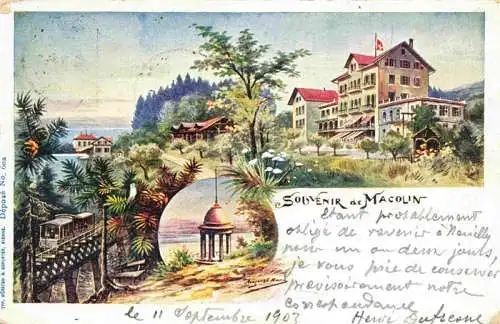 SOUVENIR de MACOLIN
Etant probablement
obligé de revenir à Neuilly
pour un ou deux jours,
je vous prie de conserver
provisoirement notre
correspondance
Henri Dufresne
le 11 Septembre 1903
Déposé No. 602